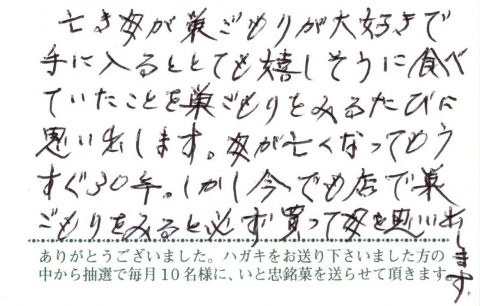 亡き母が巣ごもりが大好きで
手に入るととても嬉しそうに食べ
ていたことを巣ごもりをみるたびに
思い出します。母が亡くなってもう
すぐ30年。しかし今でも店で巣
ごもりをみると必ず買って母を思い出します
ありがとうございました。ハガキをお送り下さいました方の
中から抽選で毎月10名様に、いと忠銘菓を送らせて頂きます。